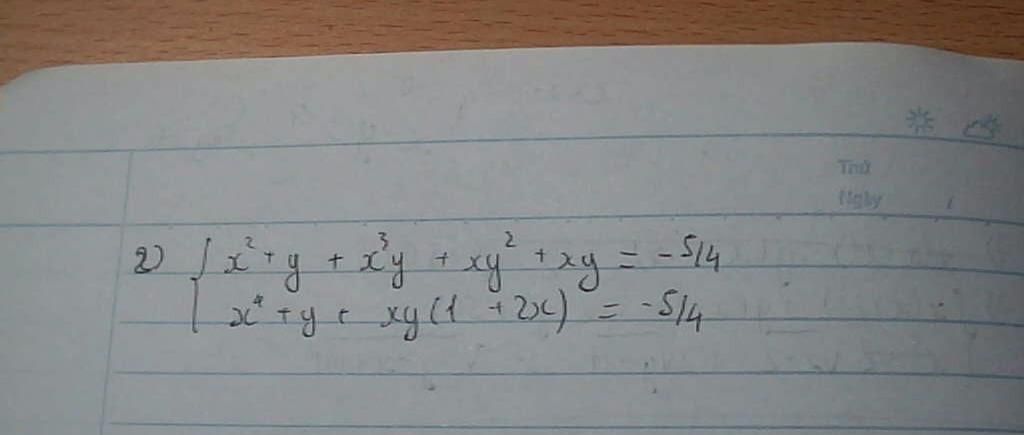 Thứ
Ngày /
2) { x² + y + x³y + xy² + xy = -5/4
x⁴ + y + xy(1 + 2x) = -5/4